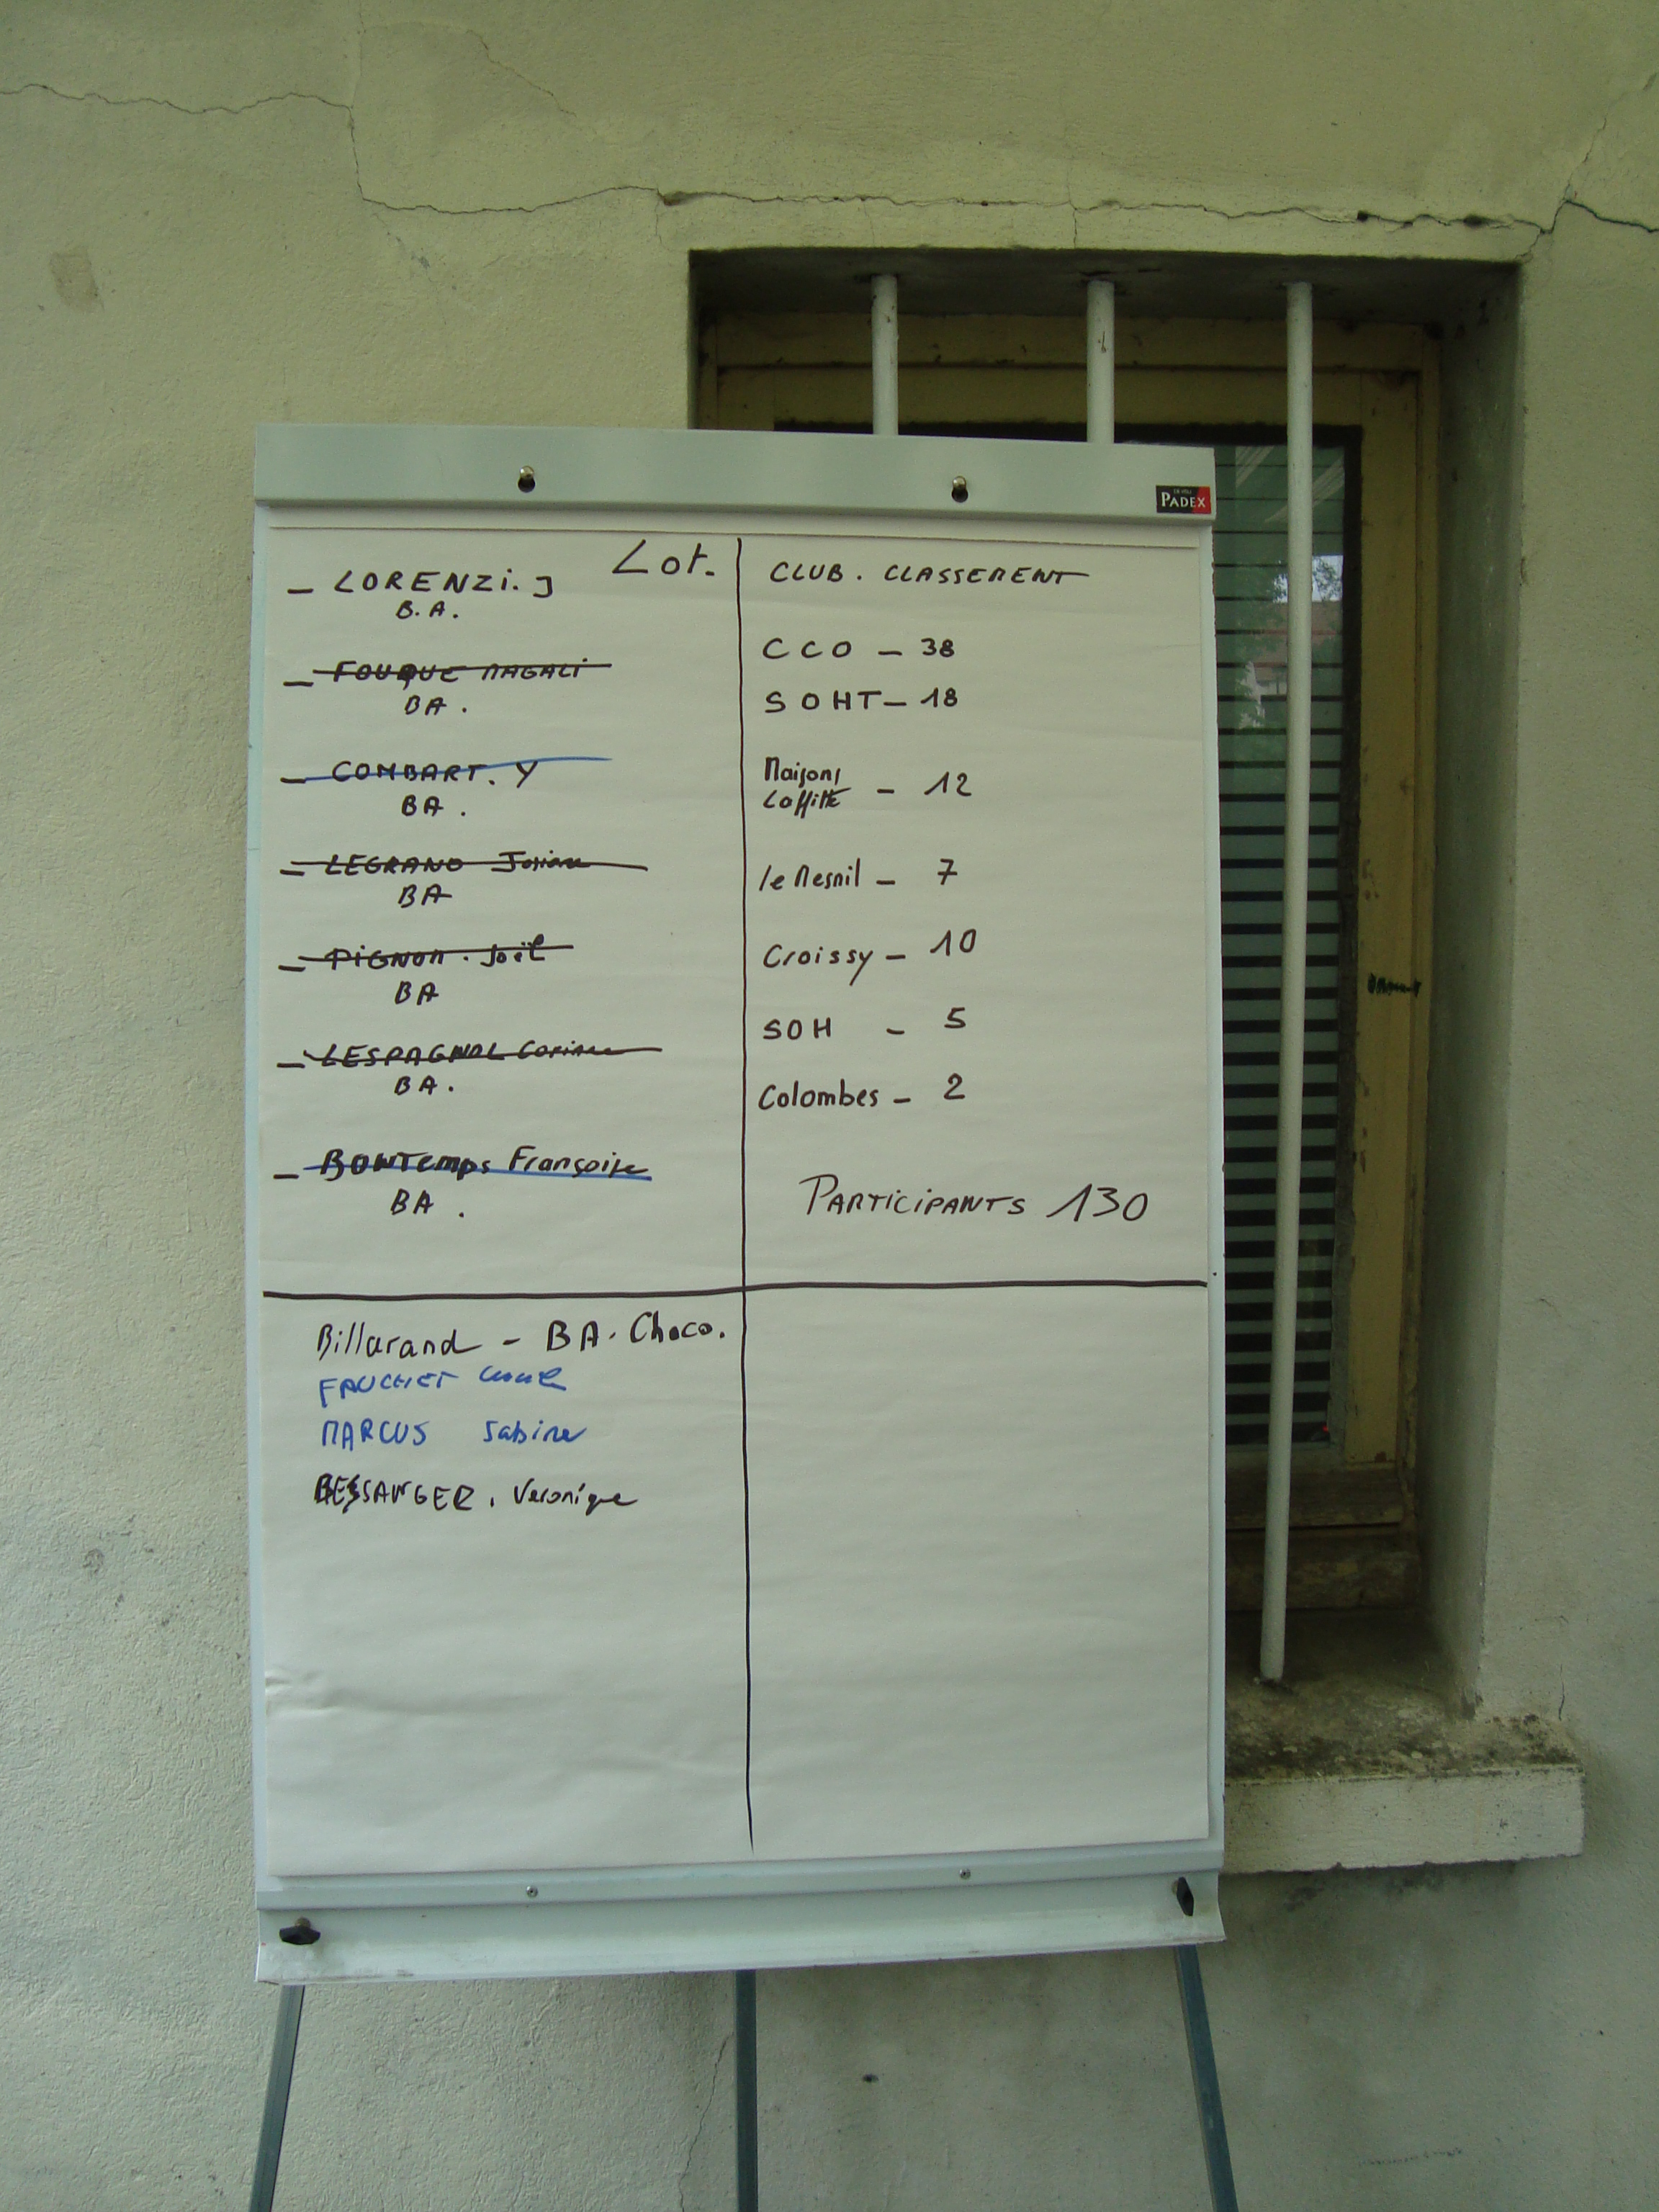 PADEX
Lot.
– LORENZI. J
B.A.
– FOUQUE MAGALI
BA.
– COMBART. Y
BA.
– LEGRAND Josiane
BA
– PIGNON. Joël
BA
– LESPAGNOL Corinne
BA.
– BONTEMPS Françoise
BA.
CLUB. CLASSEMENT
CCO – 38
SOHT – 18
Maisons
Laffitte – 12
le Mesnil – 7
Croissy – 10
SOH – 5
Colombes – 2
PARTICIPANTS 130
Billarand – BA. Choco.
FAUCHET
MARCUS Sabine
BESSANGER. Veronique